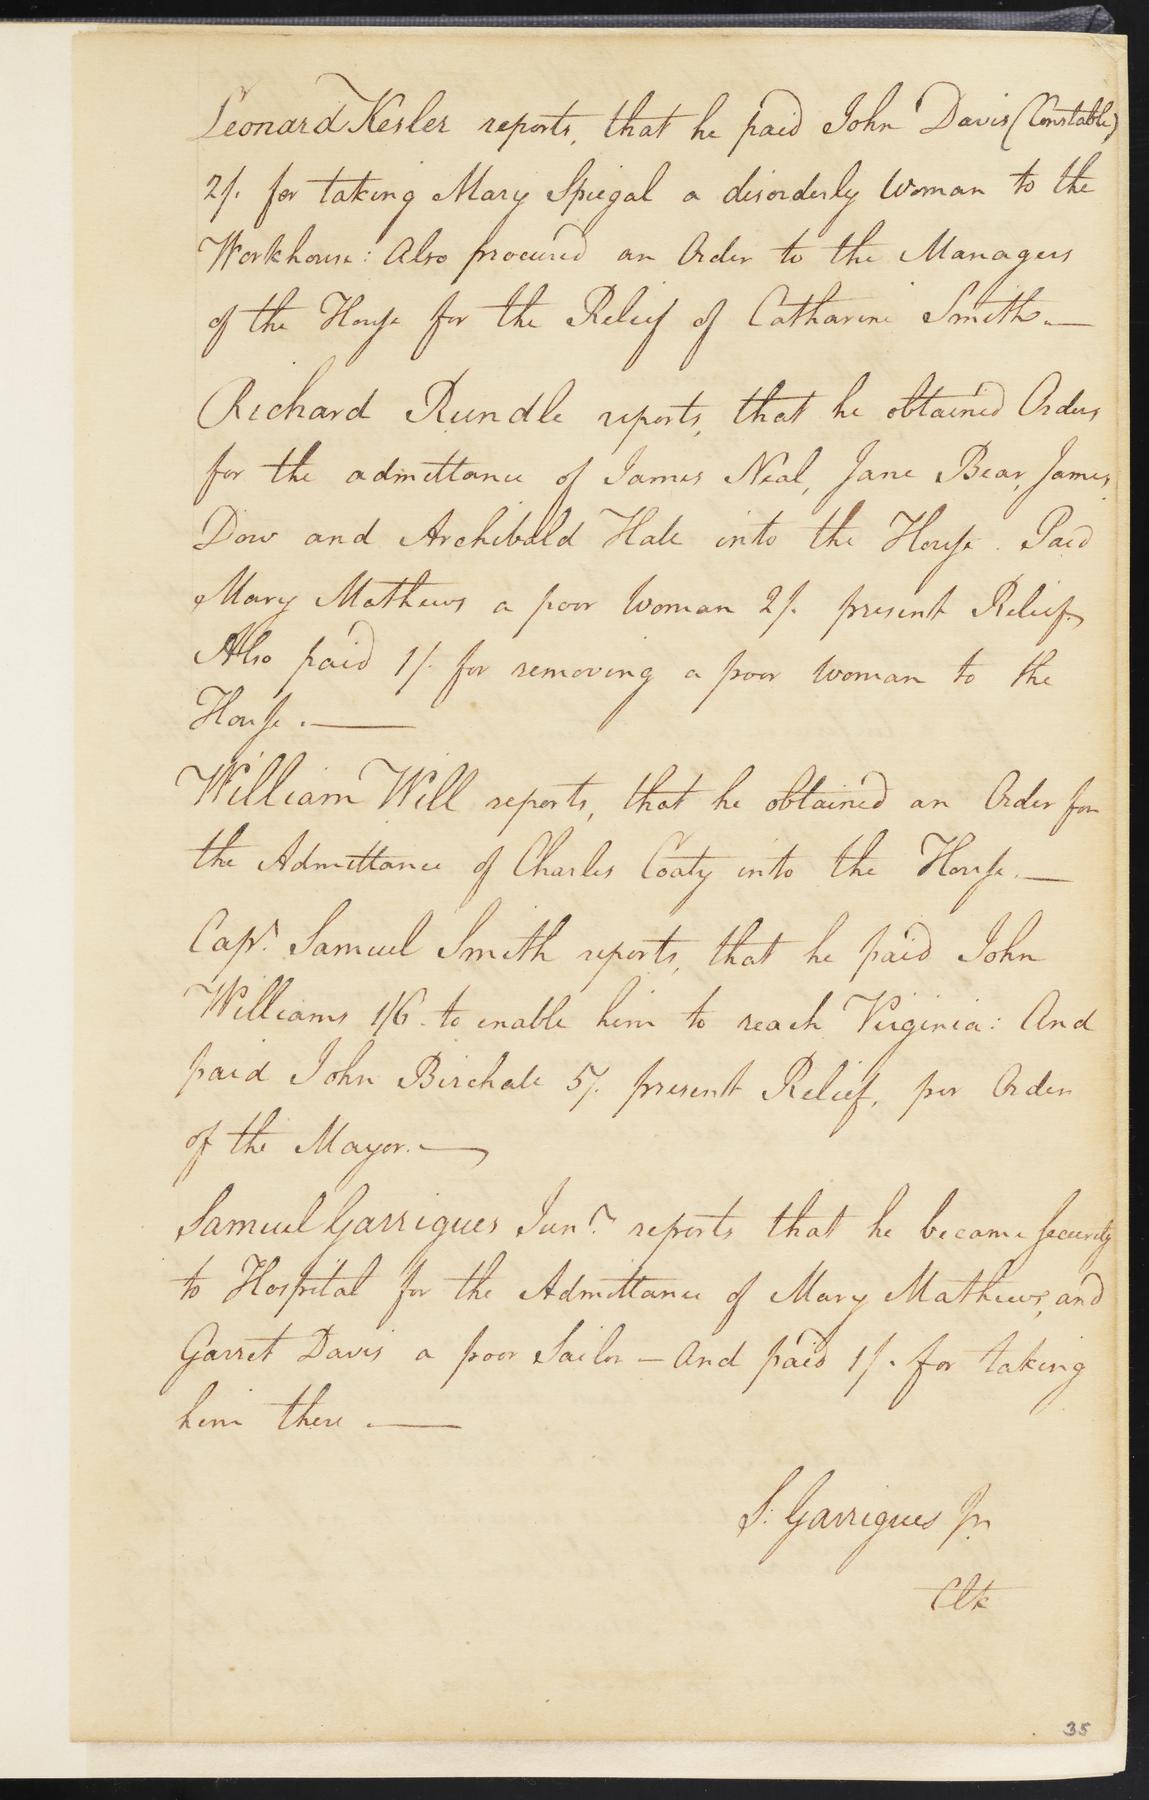 Leonard Kesler reports, that he paid John Davis (Constable)
2/. for taking Mary Spiegal a disorderly Woman to the
Workhouse: Also procured an Order to the Managers
of the House for the Relief of Catharine Smith.—
Richard Rundle reports, that he obtained Orders
for the admittance of James Neal, Jane Bear, James
Dow and Archibald Hale into the House. Paid
Mary Mathews a poor Woman 2/. present Relief.
Also paid 1/. for removing a poor Woman to the
House.—
William Will reports, that he obtained an Order for
the Admittance of Charles Coaty into the House.—
Capt. Samuel Smith reports, that he paid John
Williams 1/6. to enable him to reach Virginia: And
paid John Birchale 5/. present Relief, per Order
of the Mayor.—
Samuel Garrigues Junr. reports that he became Security
to Hospital for the Admittance of Mary Mathews, and
Garret Davis a poor Sailor — And paid 1/. for taking
him there —
S. Garrigues Jr.
Clk
35